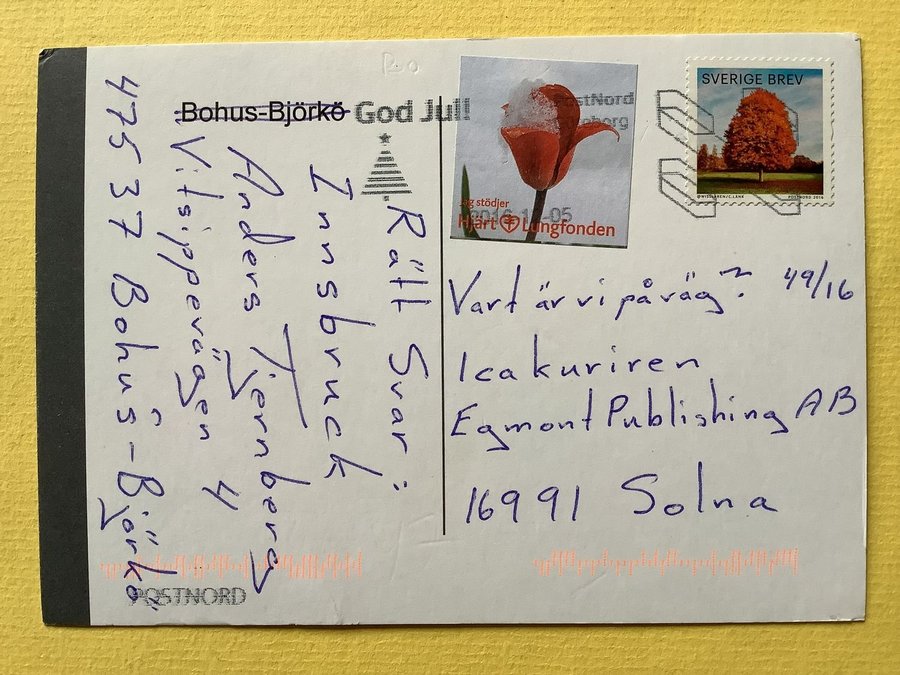 Bohus-Björkö
God Jul!
Rätt Svar:
Innsbruck
Anders Tjernberg
Vitsippevägen 4
475 37 Bohus-Björkö
POSTNORD
PostNord
Jag stödjer
Hjärt Lungfonden
SVERIGE BREV
POSTNORD 2016
Vart är vi på väg? 49/16
Icakuriren
Egmont Publishing AB
16991 Solna